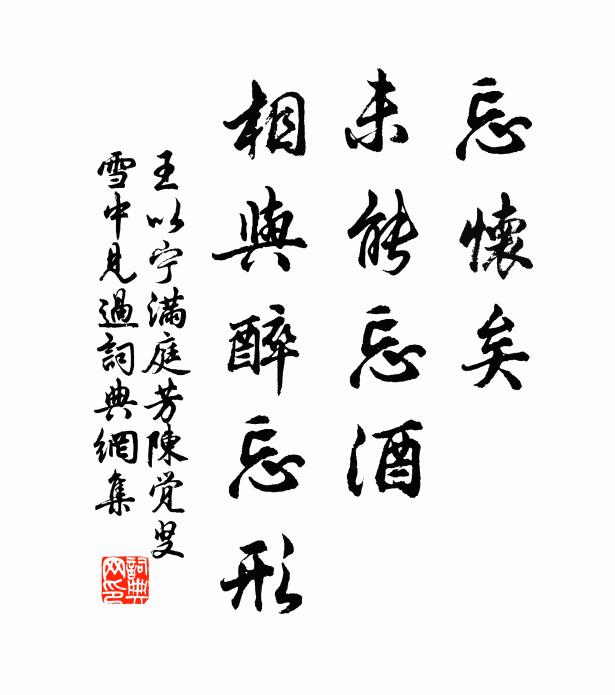 忘懷矣
未能忘酒
相與醉忘形
王以宁滿庭芳陳觉叟
雪中見過詞典網集
詞典
网印